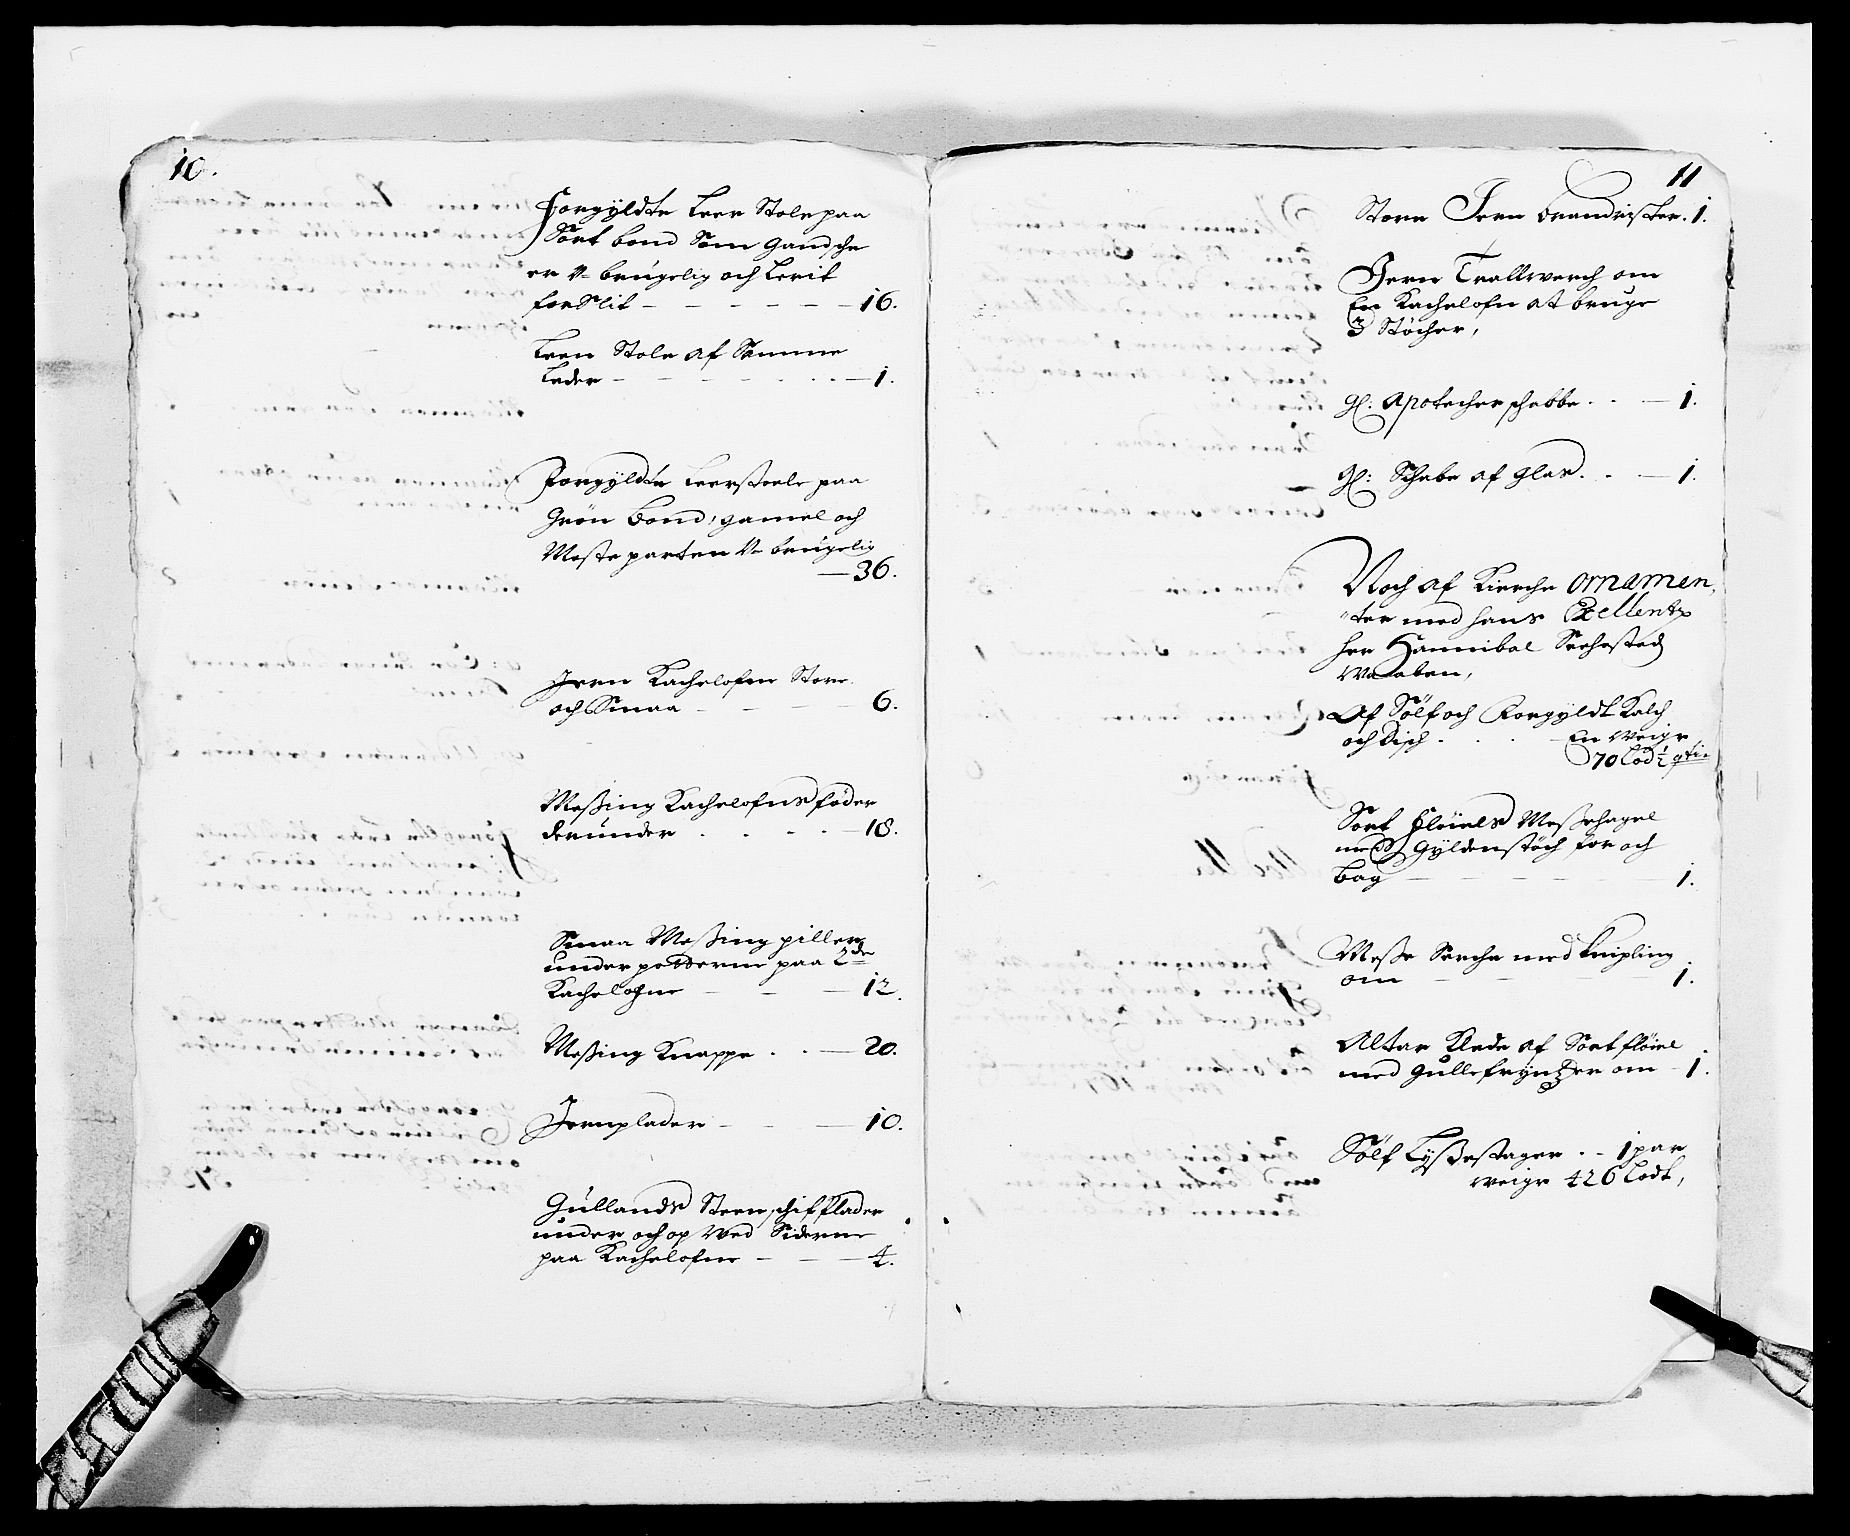 10.
Forgyldte Leer Stole paa
Sort bond Som gandsche
er V- brugelig och Lerit
forSlit - - - - - - 16.
Leen Stole af Samme
Leder - - - - - - 1.
Forgyldte Leerstoele paa
Grøn bond, gamel och
Meste parten V- brugelig
- 36.
Jern Kachelofne Store
och Smaa - - - - 6.
Messing Kachelofns føder
derunder . . . . - 18.
Smaa Messing piller
under potterne paa 2de
Kachelofne - - - 12.
Messing Knappe . . - 20.
Jernplader - - - 10.
Gullands Steen schifflader
under och op Ved Siderne
paa Kachelofne - - - 4.
11
Store Jern brandrister. 1.
Jern Trallwerch om
En Kachelofn at bruge
3 Støcher,
gl: Apotecherschabbe . . - 1.
gl: Schabe af glas . . - 1.
Noch af Kierche ornamen,
"ter med hans Exellentz
her Hannibal Seehested
Waaben,
Af Sølf och Forgyldt Kalch
och Disch . . . - En weige
70 Lod ½ qtin
Sort fløiels Messehagel
med Gyldenstöch for och
bag - - - - - 1.
Messe Serche med knipling
om - - - 1.
Altar Klede af Sort fløiel
med Gullefryntzer om - 1.
Sølf Lyssestager . - 1 par
weige 426 Lodt,